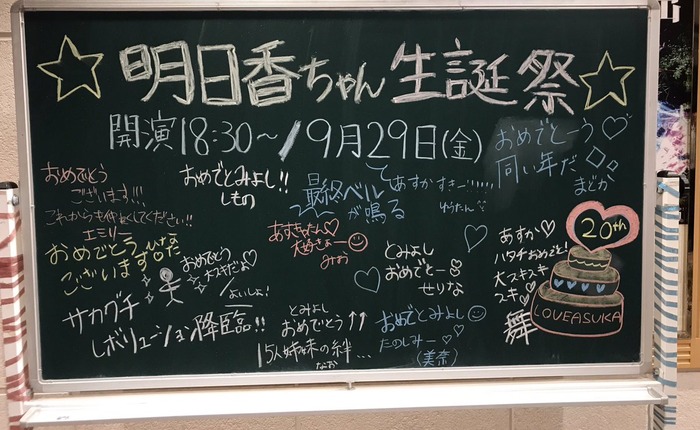 ☆明日香ちゃん生誕祭☆
開演18:30〜/9月29日(金)
おめでとーう♡
同い年だ
まどか
おめでとう
ございます!!!
これからも仲良くしてください!!
エミリー
おめでとみよし!!
しもの
最終ベル
が鳴る
あすかすきー!!!!!!
ゆうたん
おめでとう
ございます
おめでとう
大スキだよ♡
あすきゃたん♡
大好きよー
みおう
とみよし
おめでとー
せりな
あすか♡
ハタチおめでと!
大スキスキ
スキ♡
舞
20th
LOVEASUKA
サカグチ
レボリューション降臨!!
とみよし
おめでとう↑↑
15人姉妹の絆...
なお
おめでとみよし
たのしみー♡
(美奈)